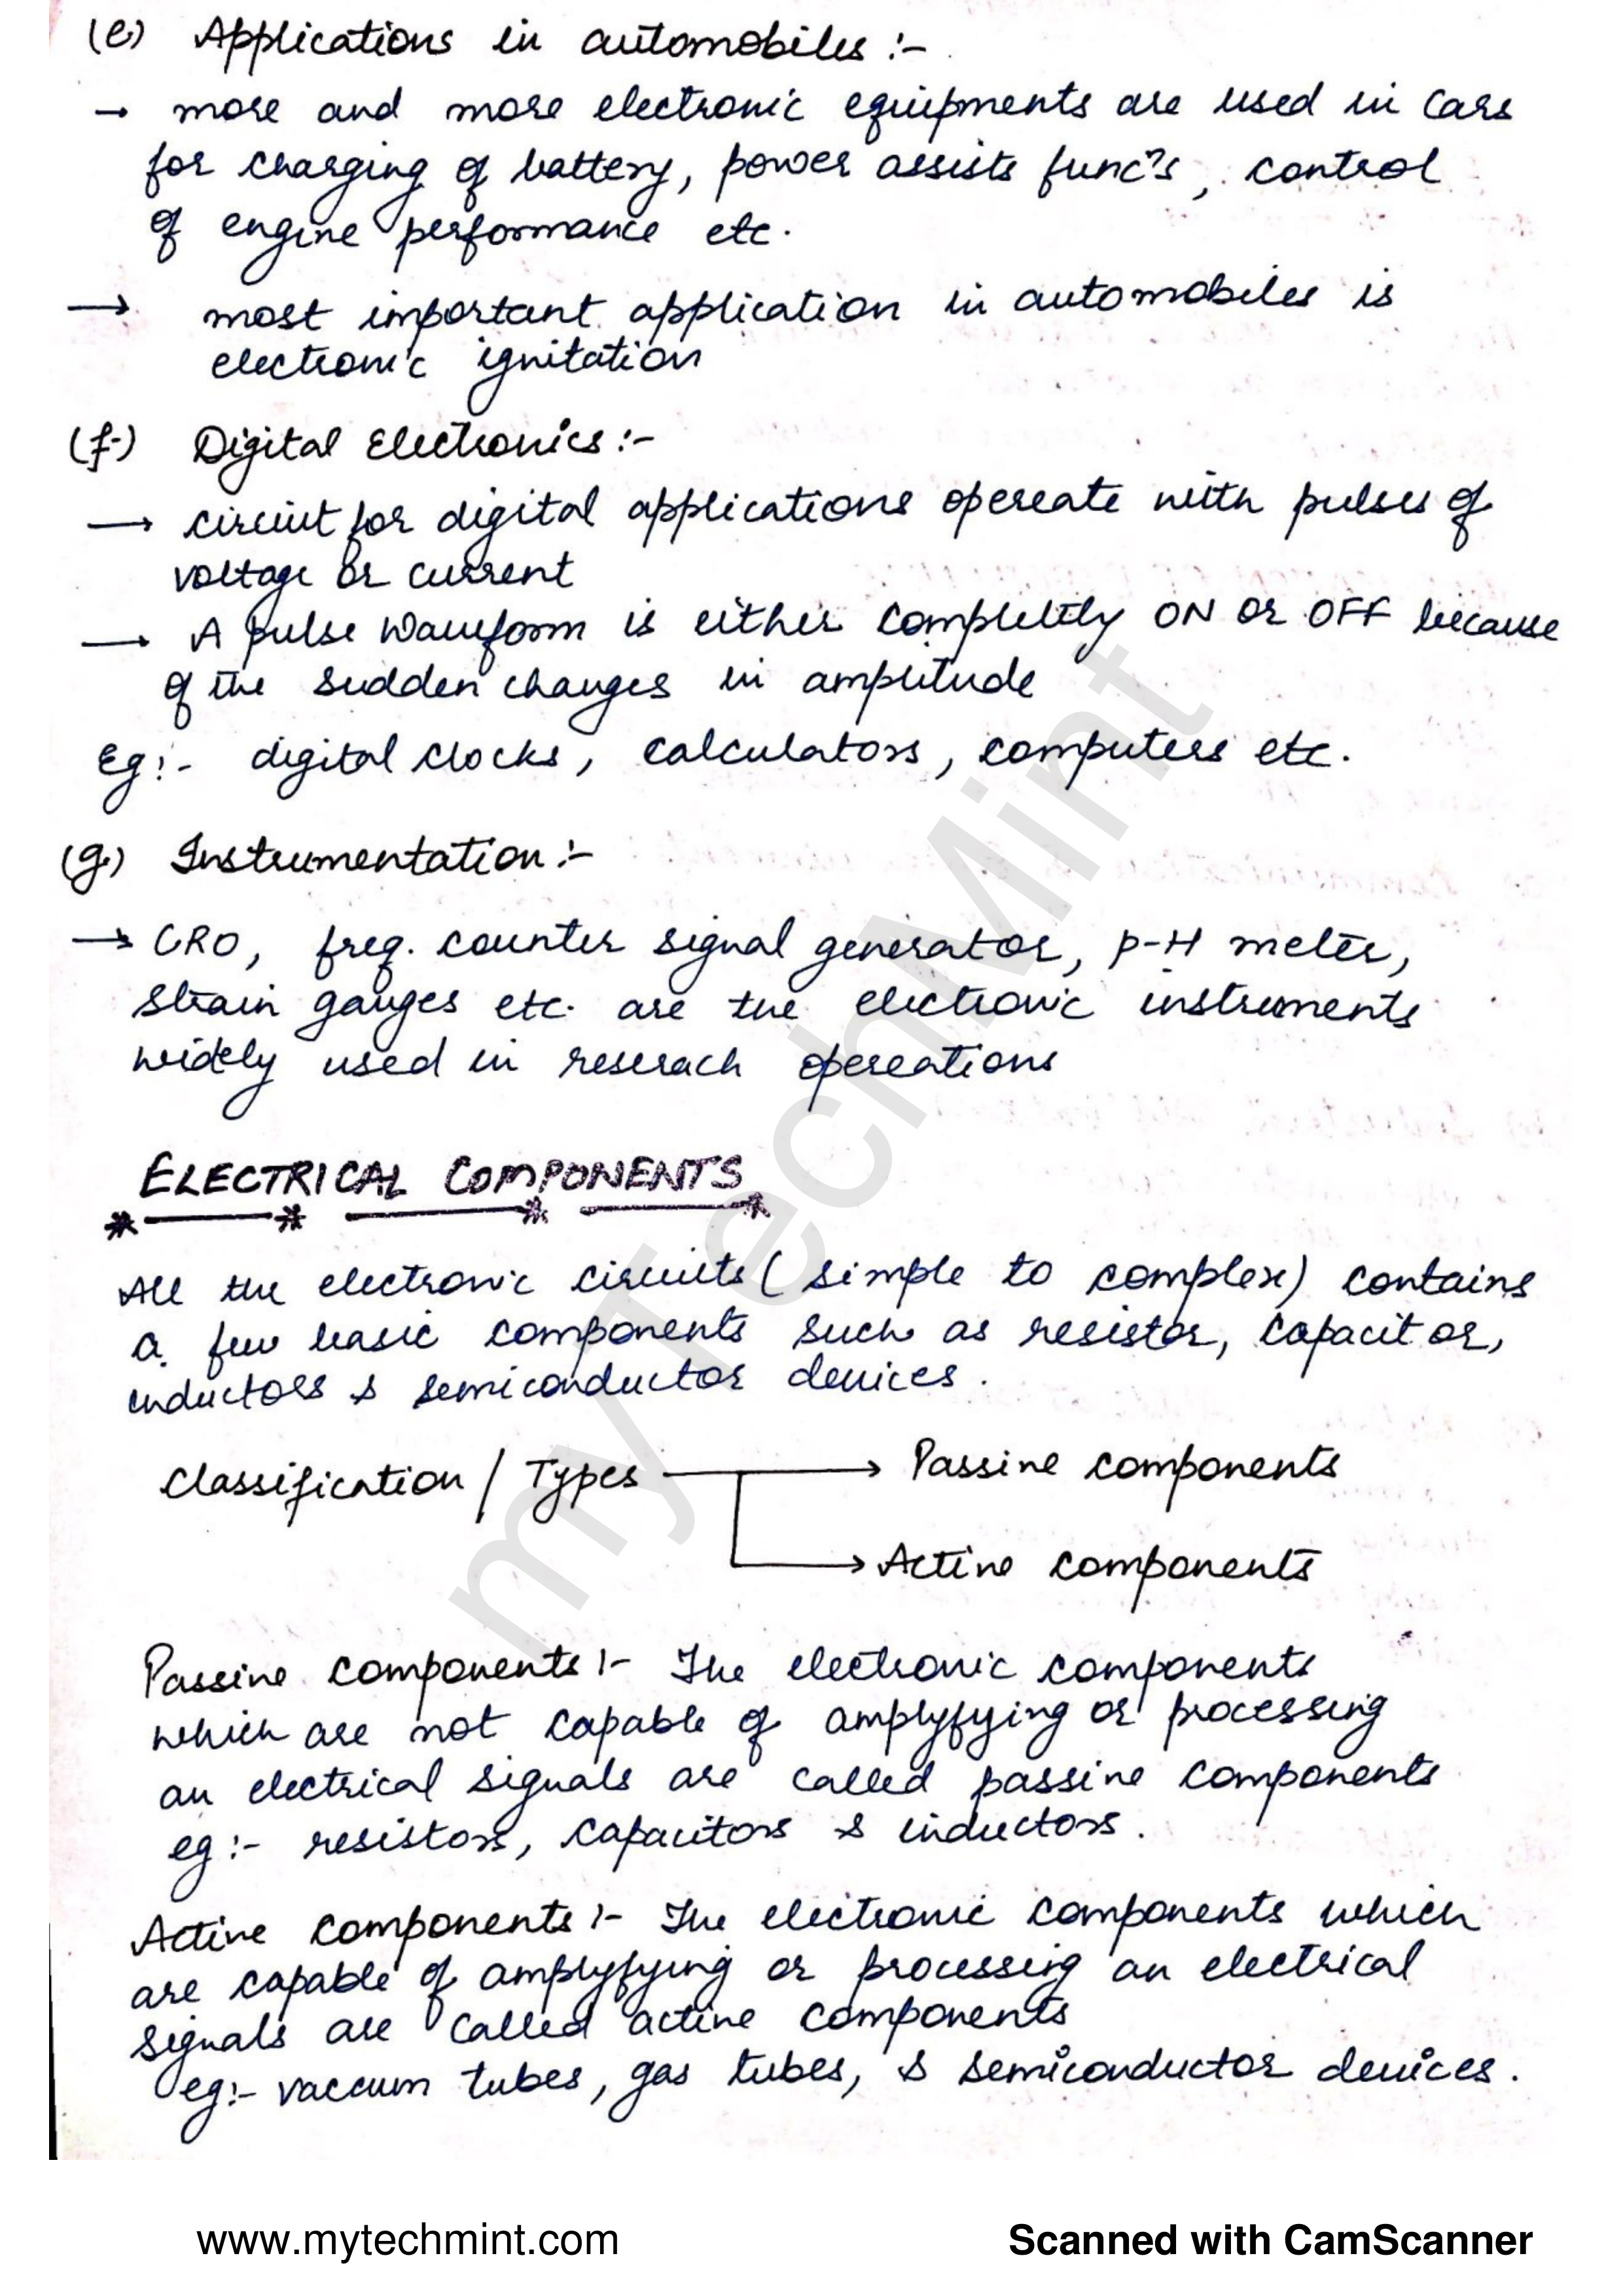 (e) Applications in automobiles :-
→ more and more electronic equipments are used in cars
for charging of battery, power assists funcⁿs, control
of engine performance etc.
→ most important application in automobiles is
electronic ignitation
(f) Digital Electronics :-
→ circuit for digital applications opereate with pulses of
voltage or current
→ A pulse waveform is either completely ON or OFF because
of the sudden changes in amplitude
Eg :- digital clocks, calculators, computers etc.
(g) Instrumentation :-
→ CRO, freq. counter signal generator, p-H meter,
strain gauges etc. are the electronic instruments
widely used in reserach opereations
ELECTRICAL COMPONENTS
All the electronic circuits (simple to complex) contains
a few basic components such as resistor, capacitor,
inductors & semiconductor devices.
Classification / Types → Passive components
→ Active components
Passive components :- The electronic components
which are not capable of amplyfying or processing
an electrical signals are called passive components
eg :- resistors, capacitors & inductors.
Active components :- The electronic components which
are capable of amplyfying or processing an electrical
signals are called active components
eg :- vaccum tubes, gas tubes, & semiconductor devices.
myTechMint
www.mytechmint.com
Scanned with CamScanner